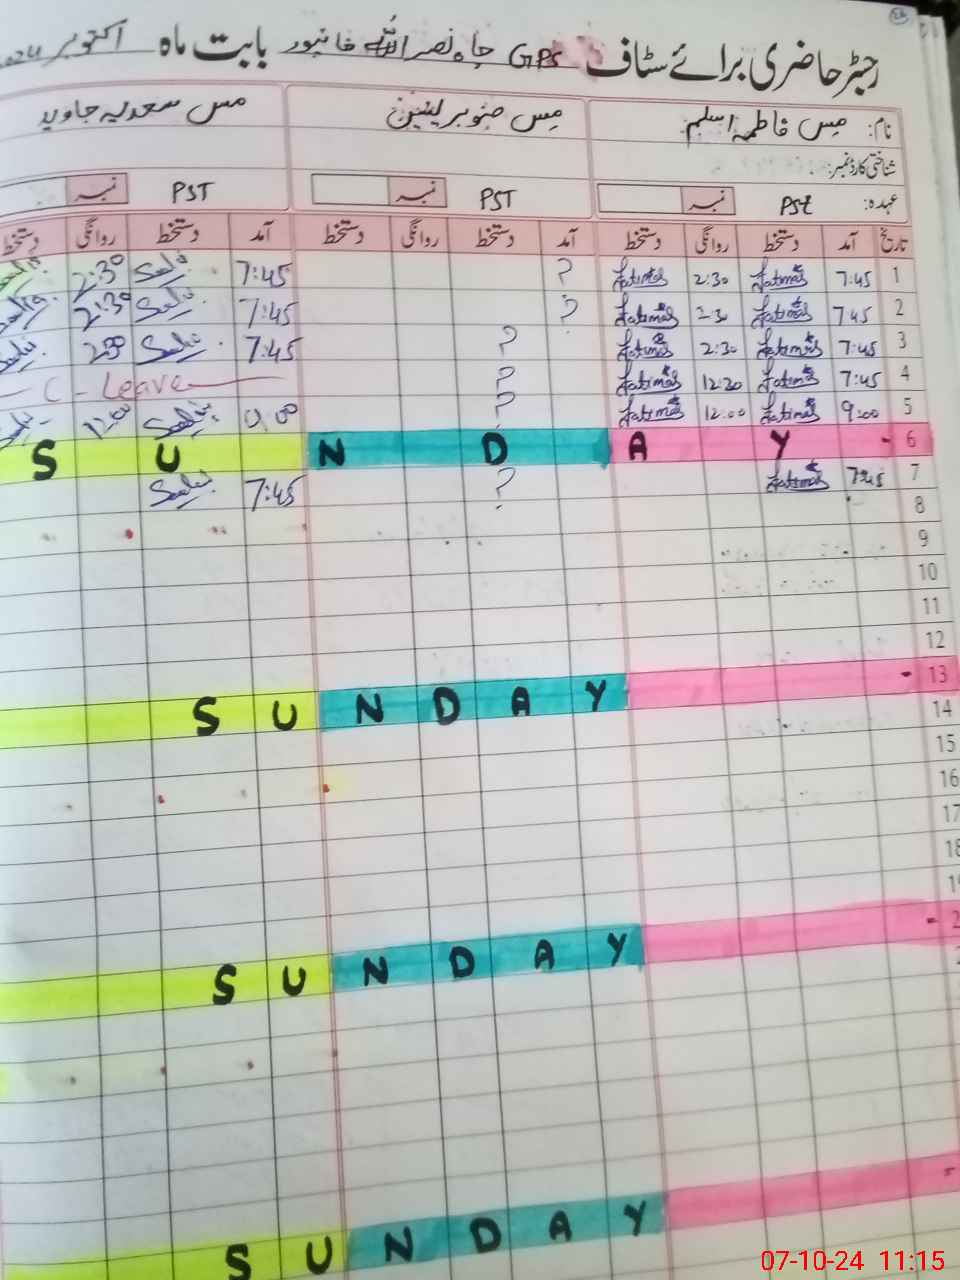 رجسٹر حاضری برائے سٹاف GPS چاہ نصر اللہ خانپور بابت ماہ اکتوبر
نام: مِس فاطمہ اسلم مِس صنوبر مس سعدیہ جاوید
شناختی کارڈ نمبر:
عہدہ: PSt نمبر PST نمبر PST نمبر
تاریخ آمد دستخط روانگی دستخط آمد دستخط روانگی دستخط آمد دستخط روانگی دستخط
1 7:45 Fatima 2:30 Fatima ? 7:45 Sadia 2:30
2 7:45 Fatima 2:30 Fatima ? 7:45 Sadia 2:30
3 7:45 Fatima 2:30 Fatima ? 7:45 Sadia 2:30
4 7:45 Fatima 12:30 Fatima ? C - Leave
5 9:00 Fatima 12:00 Fatima ? Sadia 12:00
S U N D A Y - 6
7 7:45 Fatima ? 7:45 Sadia
8
9
10
11
12
S U N D A Y - 13
14
15
16
17
18
19
S U N D A Y
S U N D A Y
07-10-24 11:15